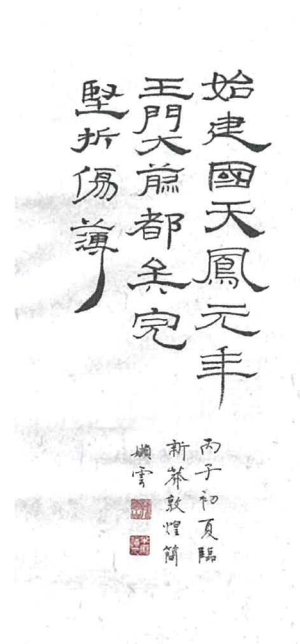 始建國天鳳元年
玉門大煎都兵完
堅折傷薄
丙子初夏臨
新莽敦煌簡